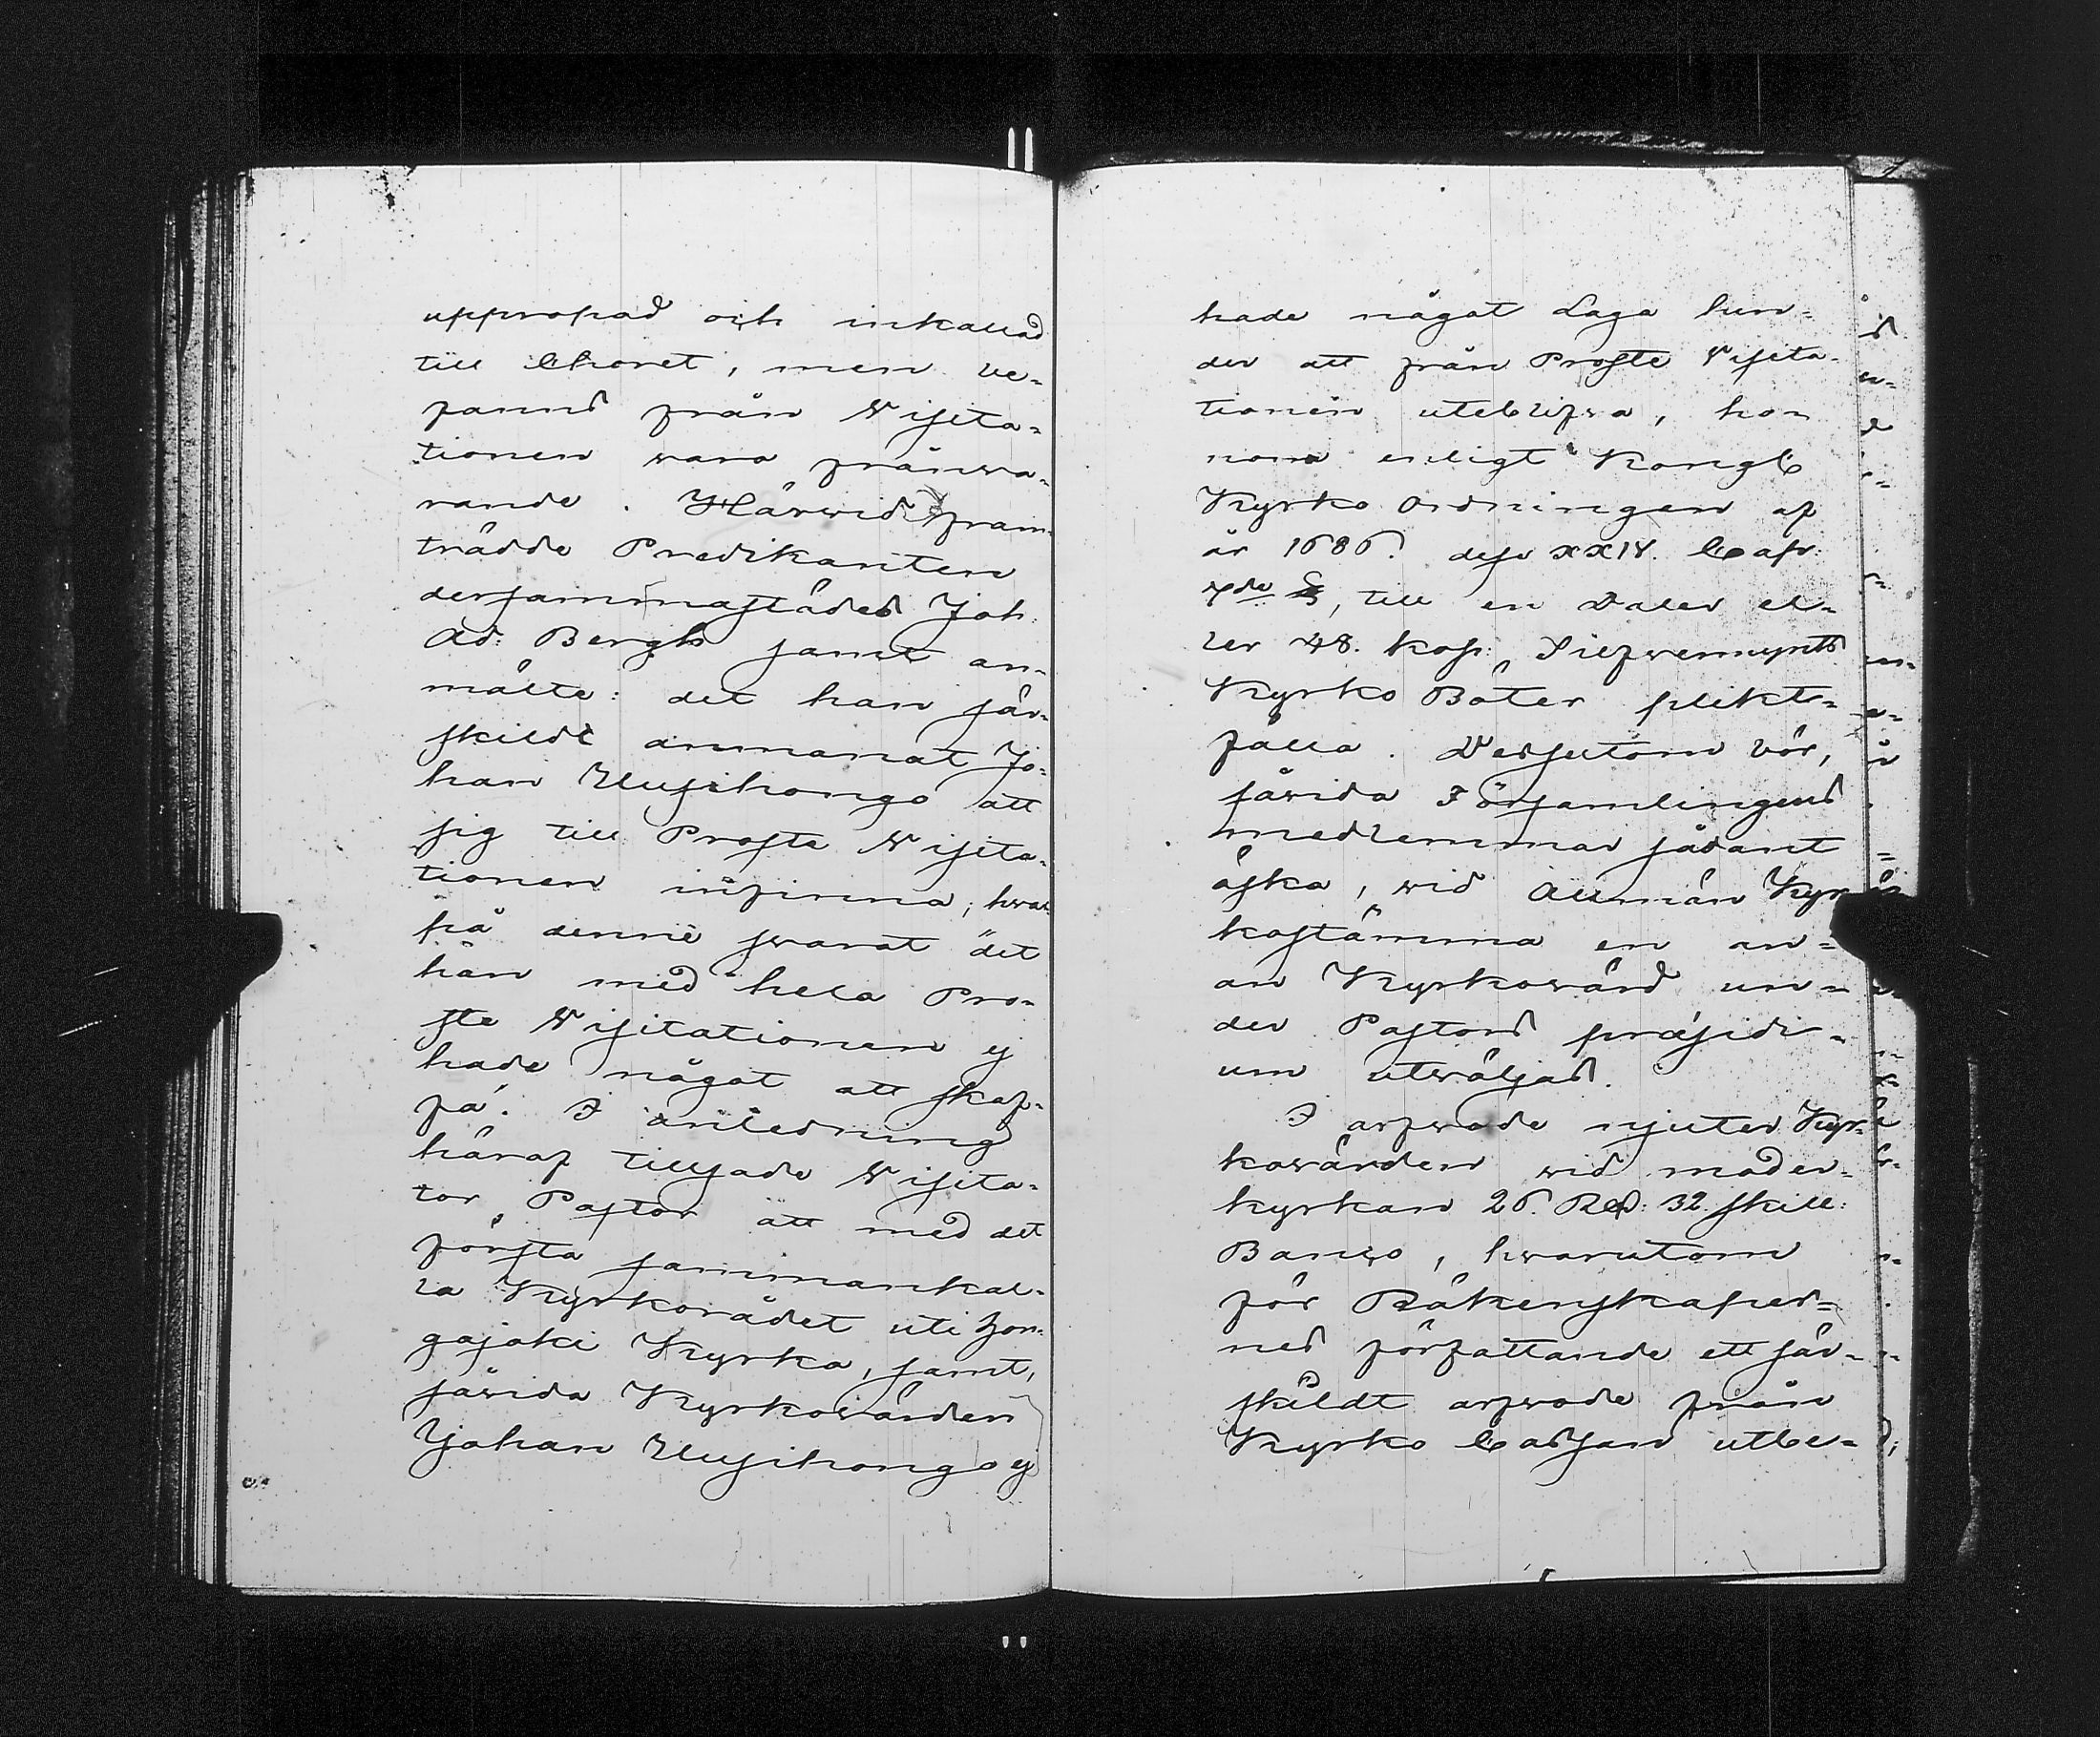 uppropad och inkallad
till Choret, men be-
fanns från Visita-
tionen vara frånva-
rande. Härwid fram-
trädde Predikanten
dersammastädes Joh.
Ad: Bergh samt an-
mälte: det han sär-
skildt anmanat Jo-
han Uusihongo att
sig till Proste Visita-
tionen infinna, hvar-
på denne svarat det
han med hela Pro-
ste Visitationen ej
hade något att skaf-
fa. I anledning
häraf tillsade Visita-
tor Pastor att med det
första sammankal-
la Kyrkorådet uti Hon-
gajoki Kyrka, samt,
såvida Kyrkovärden
Johan Uusihongo ej
hade något Laga hin-
der att från Proste Visita-
tionen uteblifva, ho-
nom enligt Kongl
Kyrko Ordningen af
år 1686. dess XXIV. Cap:
7de §, till en Daler el-
ler 48. kop: Silfvermynts
Kyrko Böter plikt-
fälla. Dessutom bör,
såvida Församlingens
medlemmar sådant
äska, wid Allmän Kyr-
kostämma en an-
an Kyrkovärd un-
der Pastors præsidi-
um utväljas.
I arfvode njuter Kyr-
kovärden wid moder-
kyrkan 26. Rd: 32. skill:
Banco, hvarutom
för Räkenskaper-
nes författande ett sär-
skildt arfvode från
Kyrko Cassan utbe-